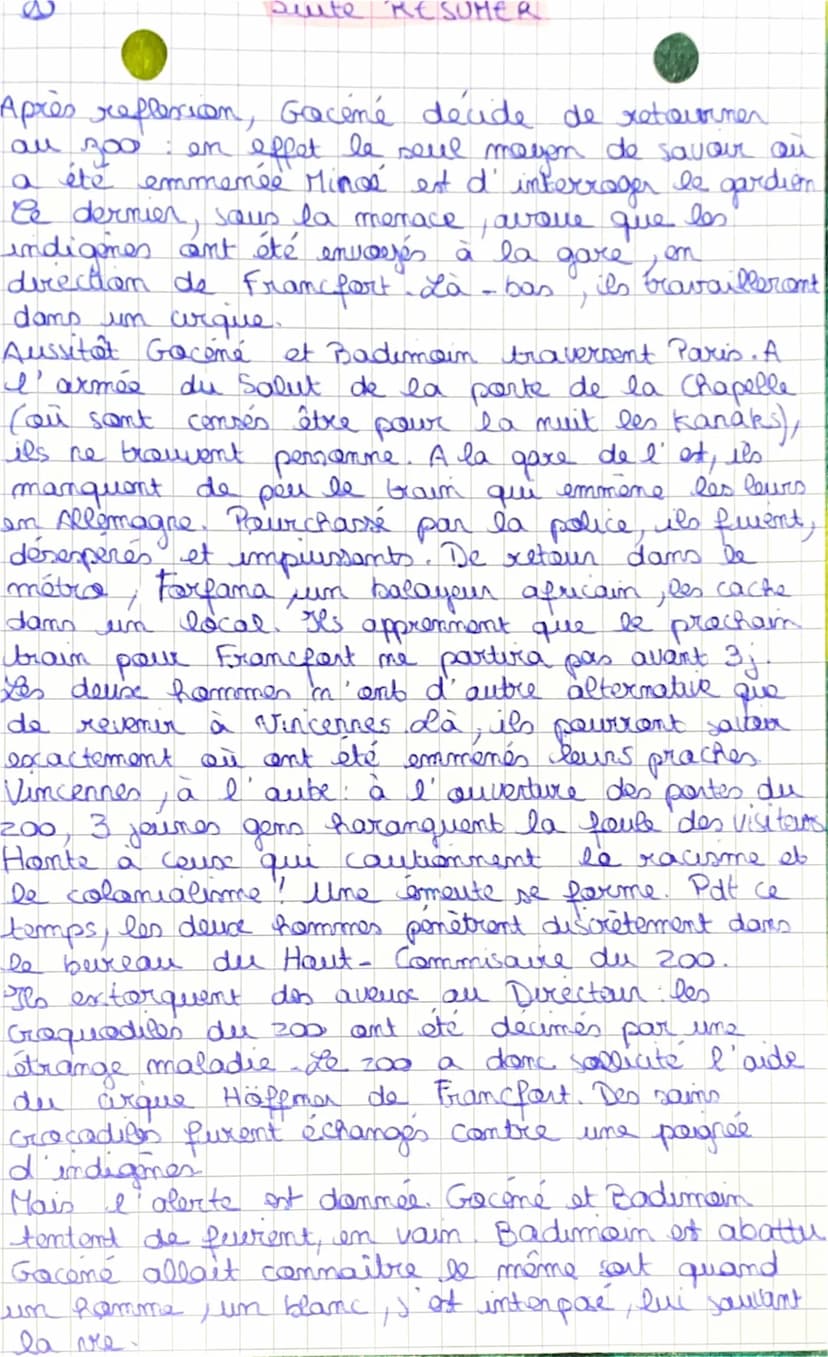 Suite RESUMER
Après reflexion, Gocéné décide de retourner
au zoo : en effet le seul moyen de savoir où
a été emmenée Minoé est d'interroger le gardien
Ce dernier, sous la menace, avoue que les
indigènes ont été envoyés à la gare, en
direction de Francfort. Là-bas, ils travailleront
dans un cirque.
Aussitôt Gocéné et Badimoin traversent Paris. A
l'armée du Salut de la porte de la Chapelle
(où sont censés être pour la nuit les Kanaks),
ils ne trouvent personne. A la gare de l'est, ils
manquent de peu le train qui emmène les leurs
en Allemagne. Pourchassé par la police, ils fuient,
désespérés et impuissants. De retour dans le
métro, Fofana, un balayeur africain, les cache
dans un local. Ils apprennent que le prochain
train pour Francfort ne partira pas avant 3j.
Les deux hommes n'ont d'autre alternative que
de revenir à Vincennes. Là, ils pourront
exactement où ont été emmenés leurs proches
Vincennes, à l'aube : à l'ouverture des portes du
zoo, 3 jeunes gens haranguent la foule des visiteurs
Honte à ceux qui cautionnent le racisme et
le colonialisme ! Une émeute se forme. Pdt ce
temps, les deux hommes pénètrent discrètement dans
le bureau du Haut-Commisaire du zoo.
Ils extorquent des aveux au Directeur : les
croquodiles du zoo ont été décimés par une
étrange maladie. Le zoo a donc sollicité l'aide
du cirque Höffner de Francfort. Des sains
crocodiles furent échangés contre une poignée
d'indigènes
Mais l'alerte est donnée. Gocéné et Badimoin
tentent de fuirent, en vain. Badimoin est abattu
Gocéné allait connaître le même sort quand
un homme, un blanc, s'est interposé, lui sauvant
la vie.